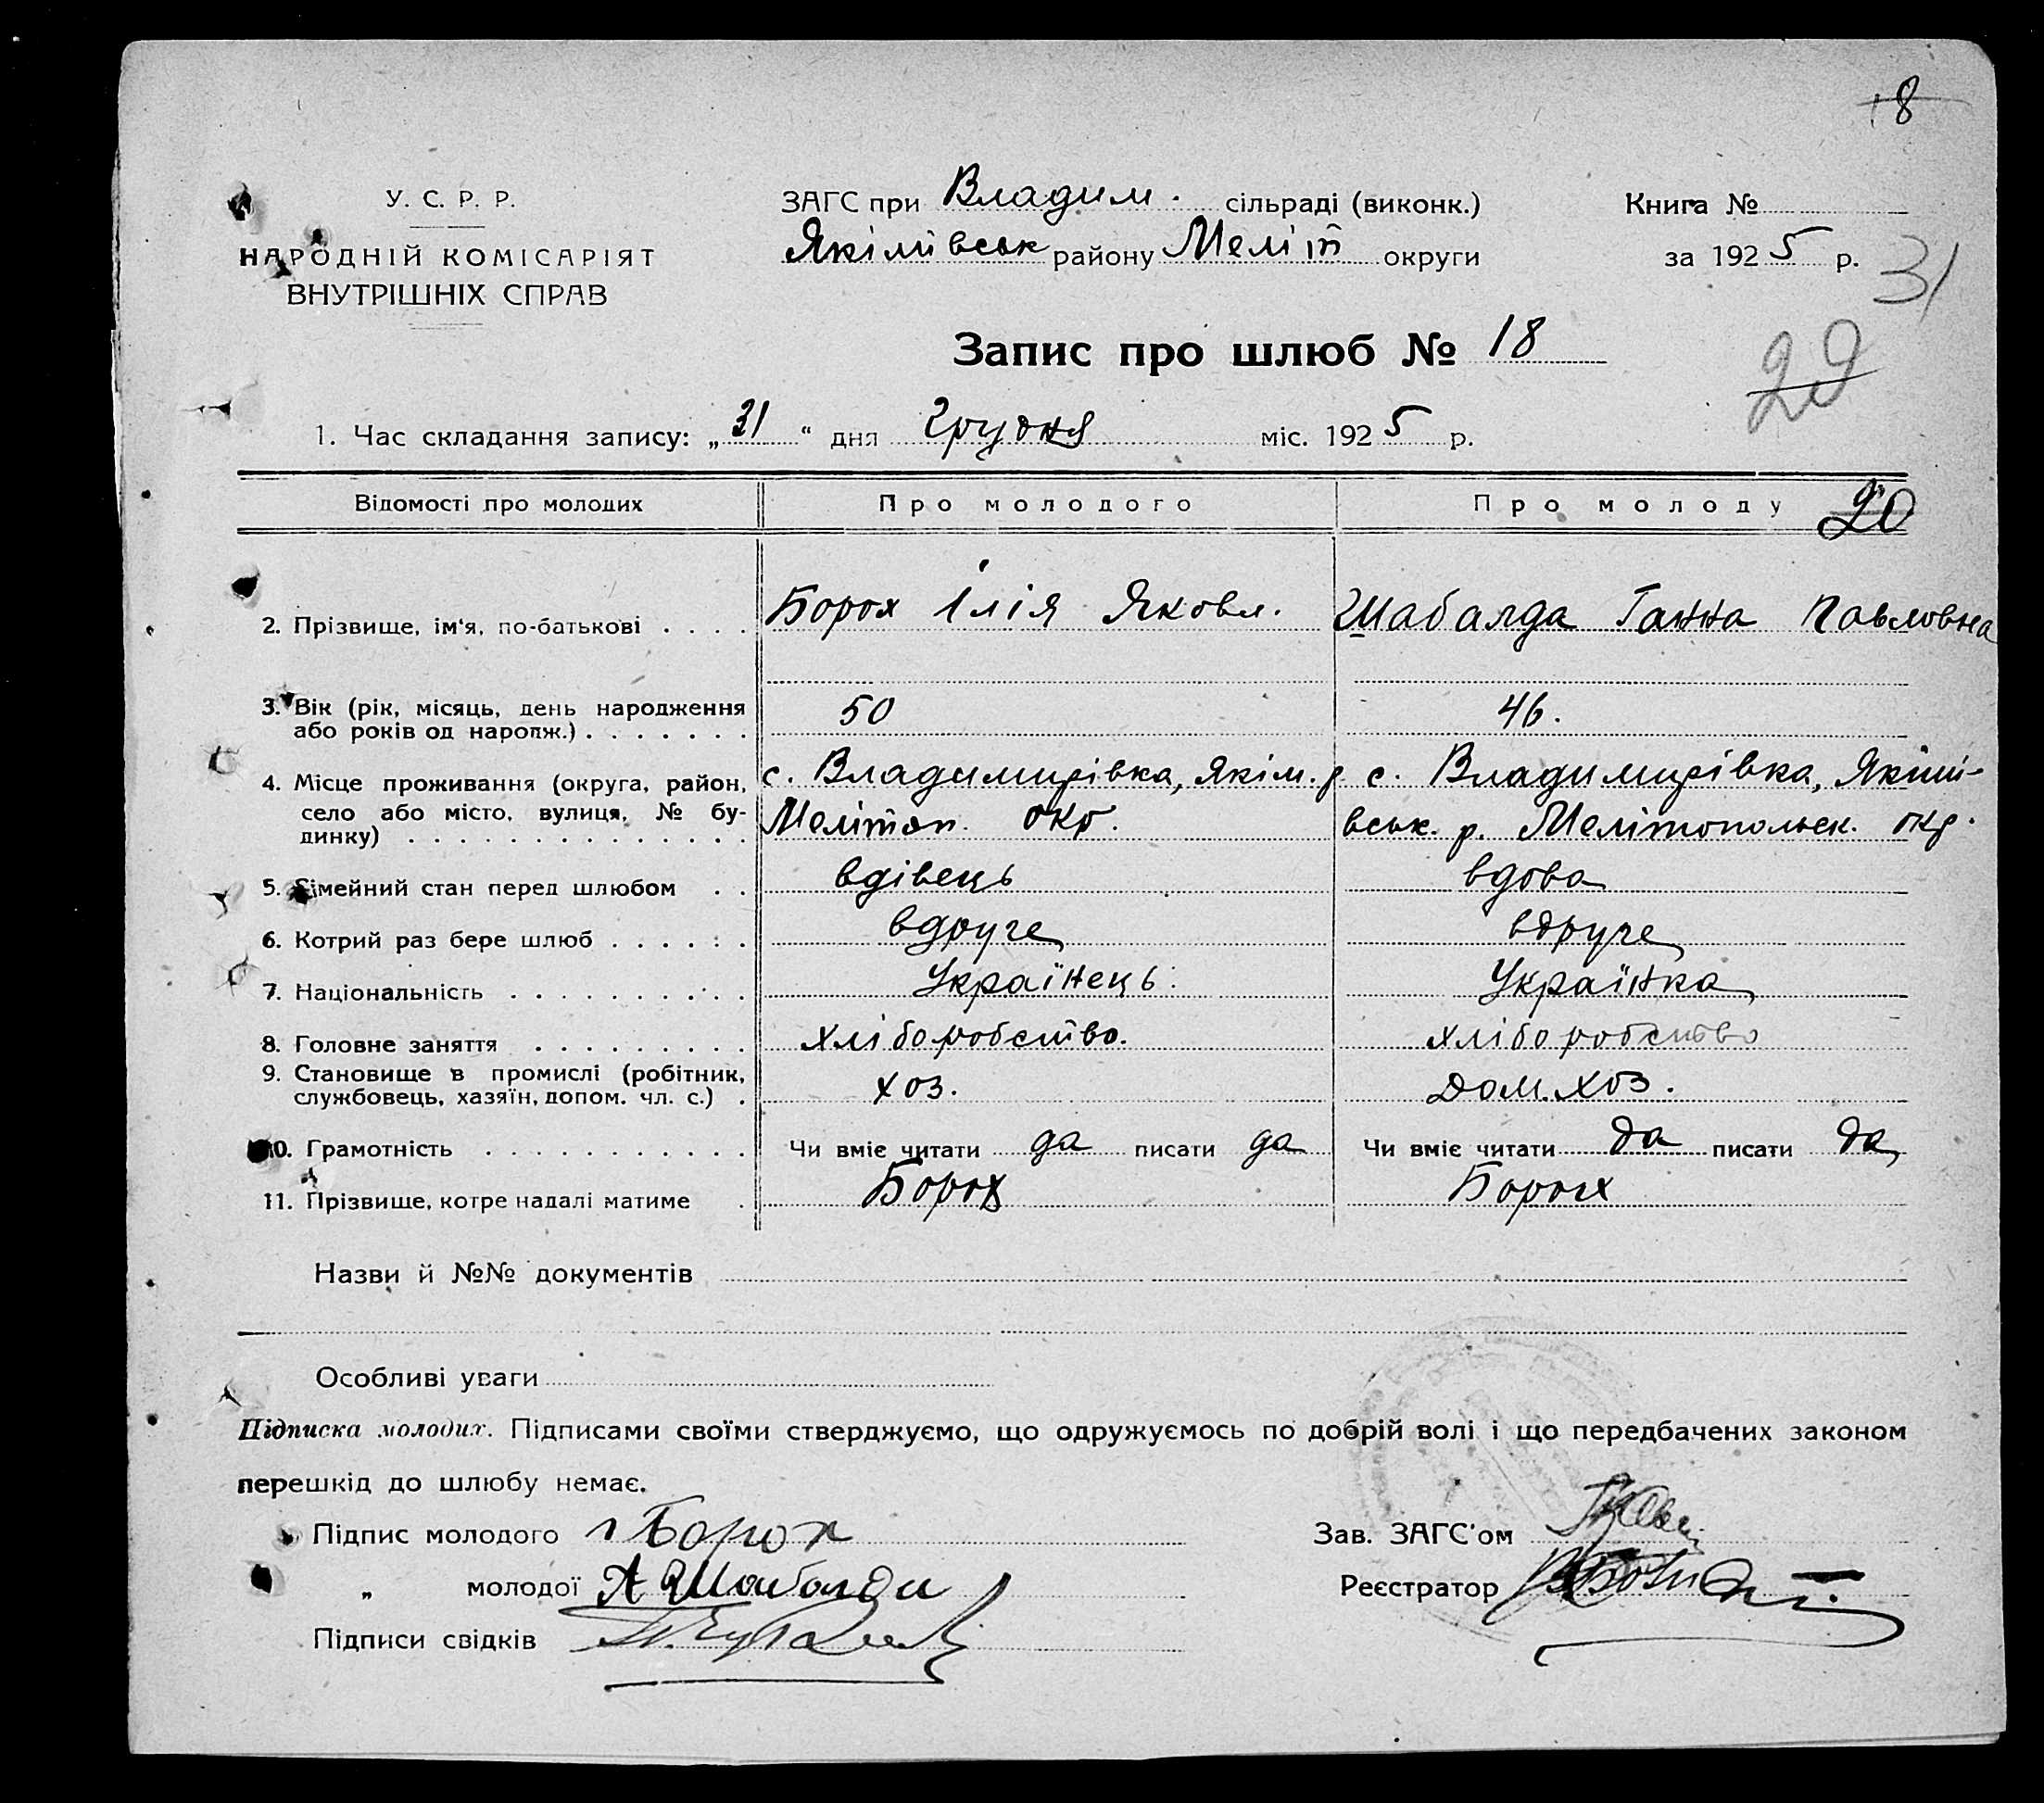 18
У. С. Р. Р.
НАРОДНІЙ КОМІСАРІЯТ
ВНУТРІШНІХ СПРАВ
ЗАГС при Владим. сільраді (виконк.)
Якімівськ району Меліт округи
Книга №
за 1925 р.
31
Запис про шлюб № 18
29
1. Час складання запису: „31“ дня Грудня міс. 1925 р.
Відомості про молодих Про молодого Про молоду 20
2. Прізвище, ім'я, по-батькові . . . . Борох Ілія Яковл. Шабалда Ганна Павловна
3. Вік (рік, місяць, день народження
або років од народж.) . . . . . . . 50 46.
4. Місце проживання (округа, район, с. Владимирівка, Якім. р. с. Владимирівка, Якімі-
село або місто, вулиця, № бу- Мелітоп. окр. вськ. р. Мелітопольск. окр.
динку) . . . . . . . . . . . . . .
5. Сімейний стан перед шлюбом . . вдівець вдова
6. Котрий раз бере шлюб . . . . . . вдруге вдруге
7. Національність . . . . . . . . . . Українець Українка
8. Головне заняття . . . . . . . . . хліборобство. хліборобство
9. Становище в промислі (робітник,
службовець, хазяїн, допом. чл. с.) . хоз. дом. хоз.
10. Грамотність . . . . . . . . . . . Чи вміє читати да писати да Чи вміє читати да писати да
11. Прізвище, котре надалі матиме . Борох Борох
Назви й №№ документів
Особливі уваги
Підписка молодих. Підписами своїми стверджуємо, що одружуємось по добрій волі і що передбачених законом
перешкід до шлюбу немає.
Підпис молодого Борох
„ молодої А Шабалда
Підписи свідків
Зав. ЗАГС'ом
Реєстратор